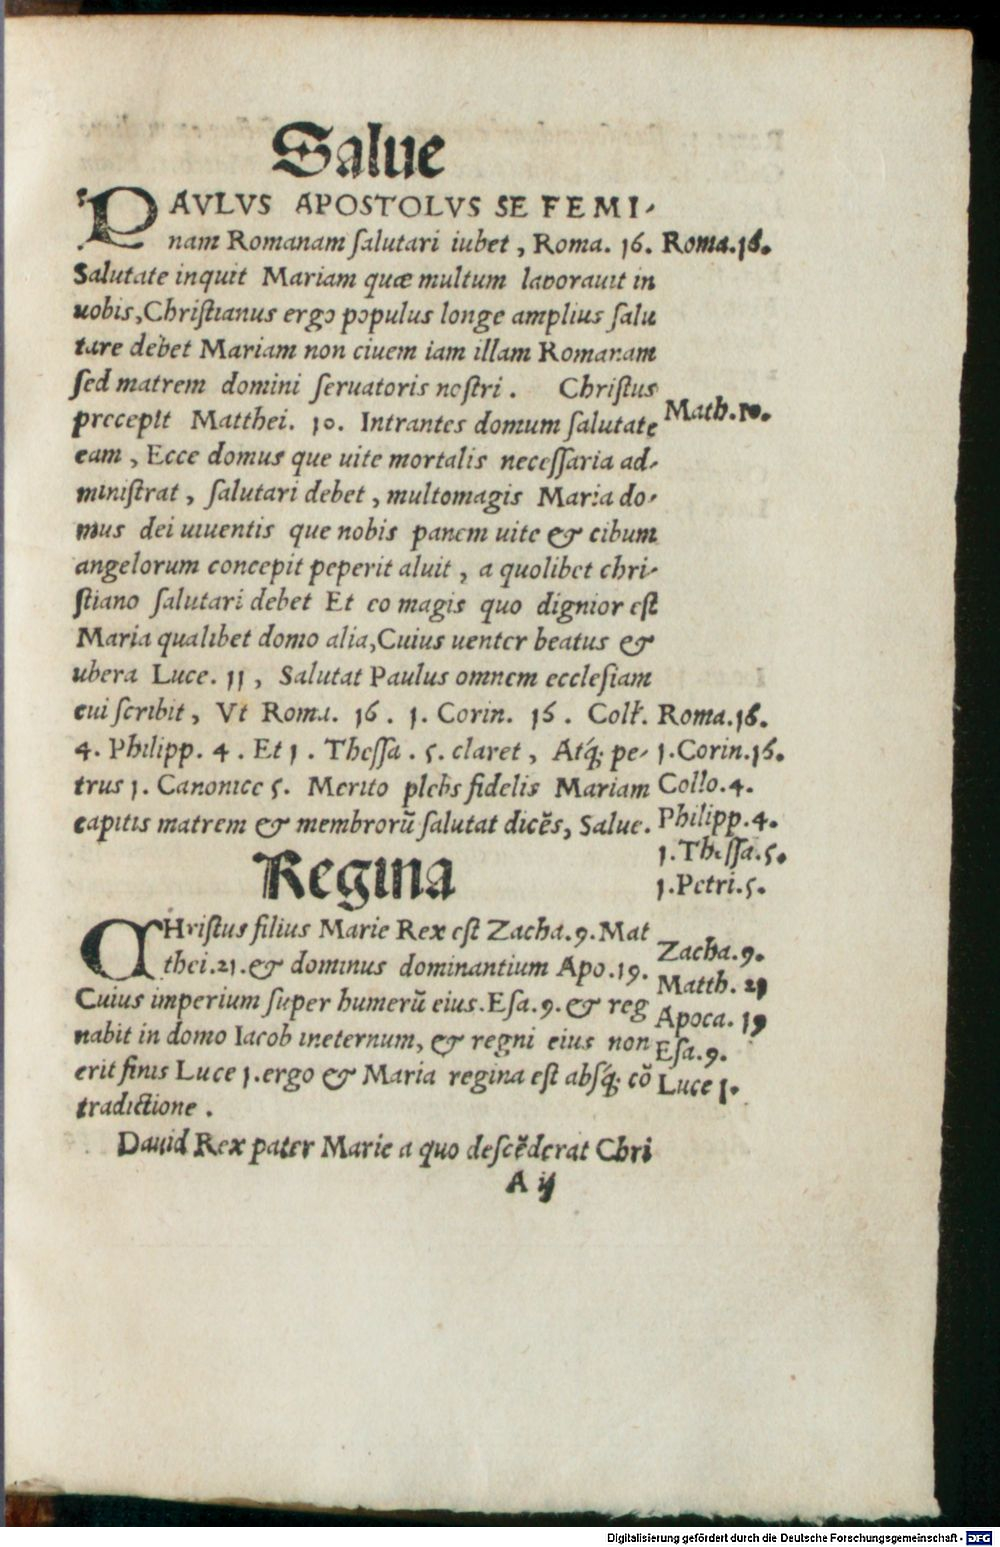 Salue
PAVLVS APOSTOLVS SE FEMI-
nam Romanam ſalutari iubet, Roma. 16. Roma.16.
Salutate inquit Mariam quæ multum laborauit in
uobis, Chriſtianus ergo populus longe amplius ſalu
tare debet Mariam non ciuem iam illam Romanam
ſed matrem domini ſeruatoris noſtri. Chriſtus
precepit Matthei. 10. Intrantes domum ſalutate Math.10.
eam, Ecce domus que uite mortalis neceſſaria ad-
miniſtrat, ſalutari debet, multomagis Maria do-
mus dei uiuentis que nobis panem uite & cibum
angelorum concepit peperit aluit, a quolibet chri-
ſtiano ſalutari debet Et eo magis quo dignior eſt
Maria qualibet domo alia, Cuius uenter beatus &
ubera Luce. 11, Salutat Paulus omnem eccleſiam
cui ſcribit, Vt Roma. 16. 1. Corin. 16. Coll. Roma.16.
4. Philipp. 4. Et 1. Theſſa. 5. claret, Atq; pe- 1.Corin.16.
trus 1. Canonice 5. Merito plebs fidelis Mariam Collo.4.
capitis matrem & membrorū ſalutat dicēs, Salue. Philipp.4.
1.Theſſa.5.
1.Petri.5.
Regina
CHriſtus filius Marie Rex eſt Zacha.9. Mat Zacha.9.
thei.21. & dominus dominantium Apo.19. Matth. 21
Cuius imperium ſuper humerū eius. Eſa.9. & reg Apoca. 19
nabit in domo Iacob ineternum, & regni eius non Eſa.9.
erit finis Luce 1. ergo & Maria regina eſt abſq; cō Luce 1.
tradictione.
Dauid Rex pater Marie a quo deſcēderat Chri
A ij
Digitalisierung gefördert durch die Deutsche Forschungsgemeinschaft - DFG